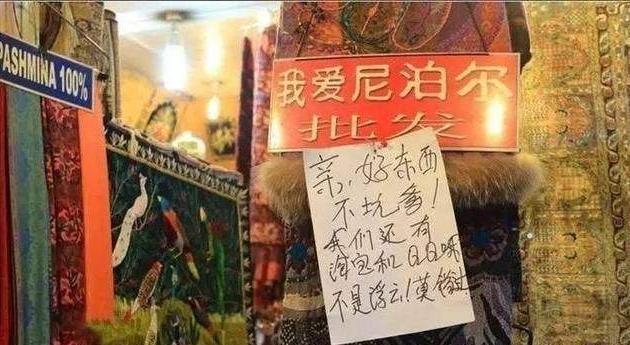 PASHMINA 100%
我爱尼泊尔
批发
亲，好东西
不坑爹！
我们还有
淘宝和QQ呀
不是浮云！莫错过